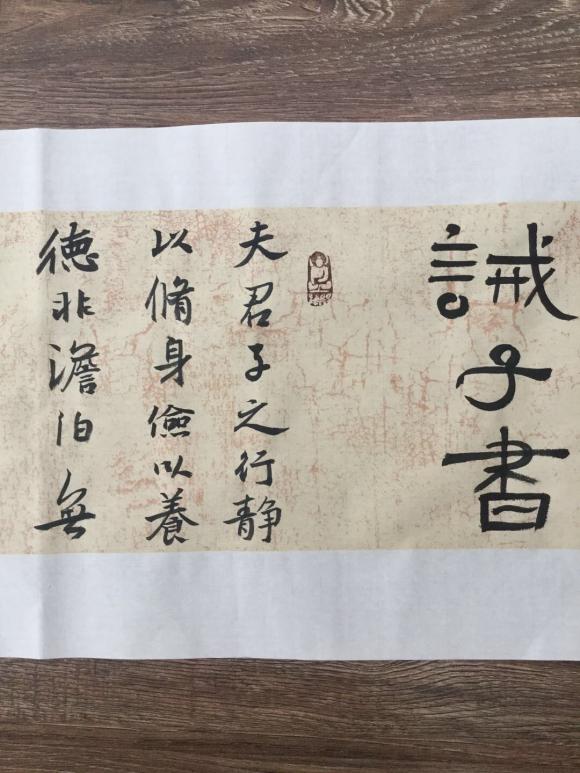 誡子書
夫君子之行静
以脩身儉以養
德非澹泊無